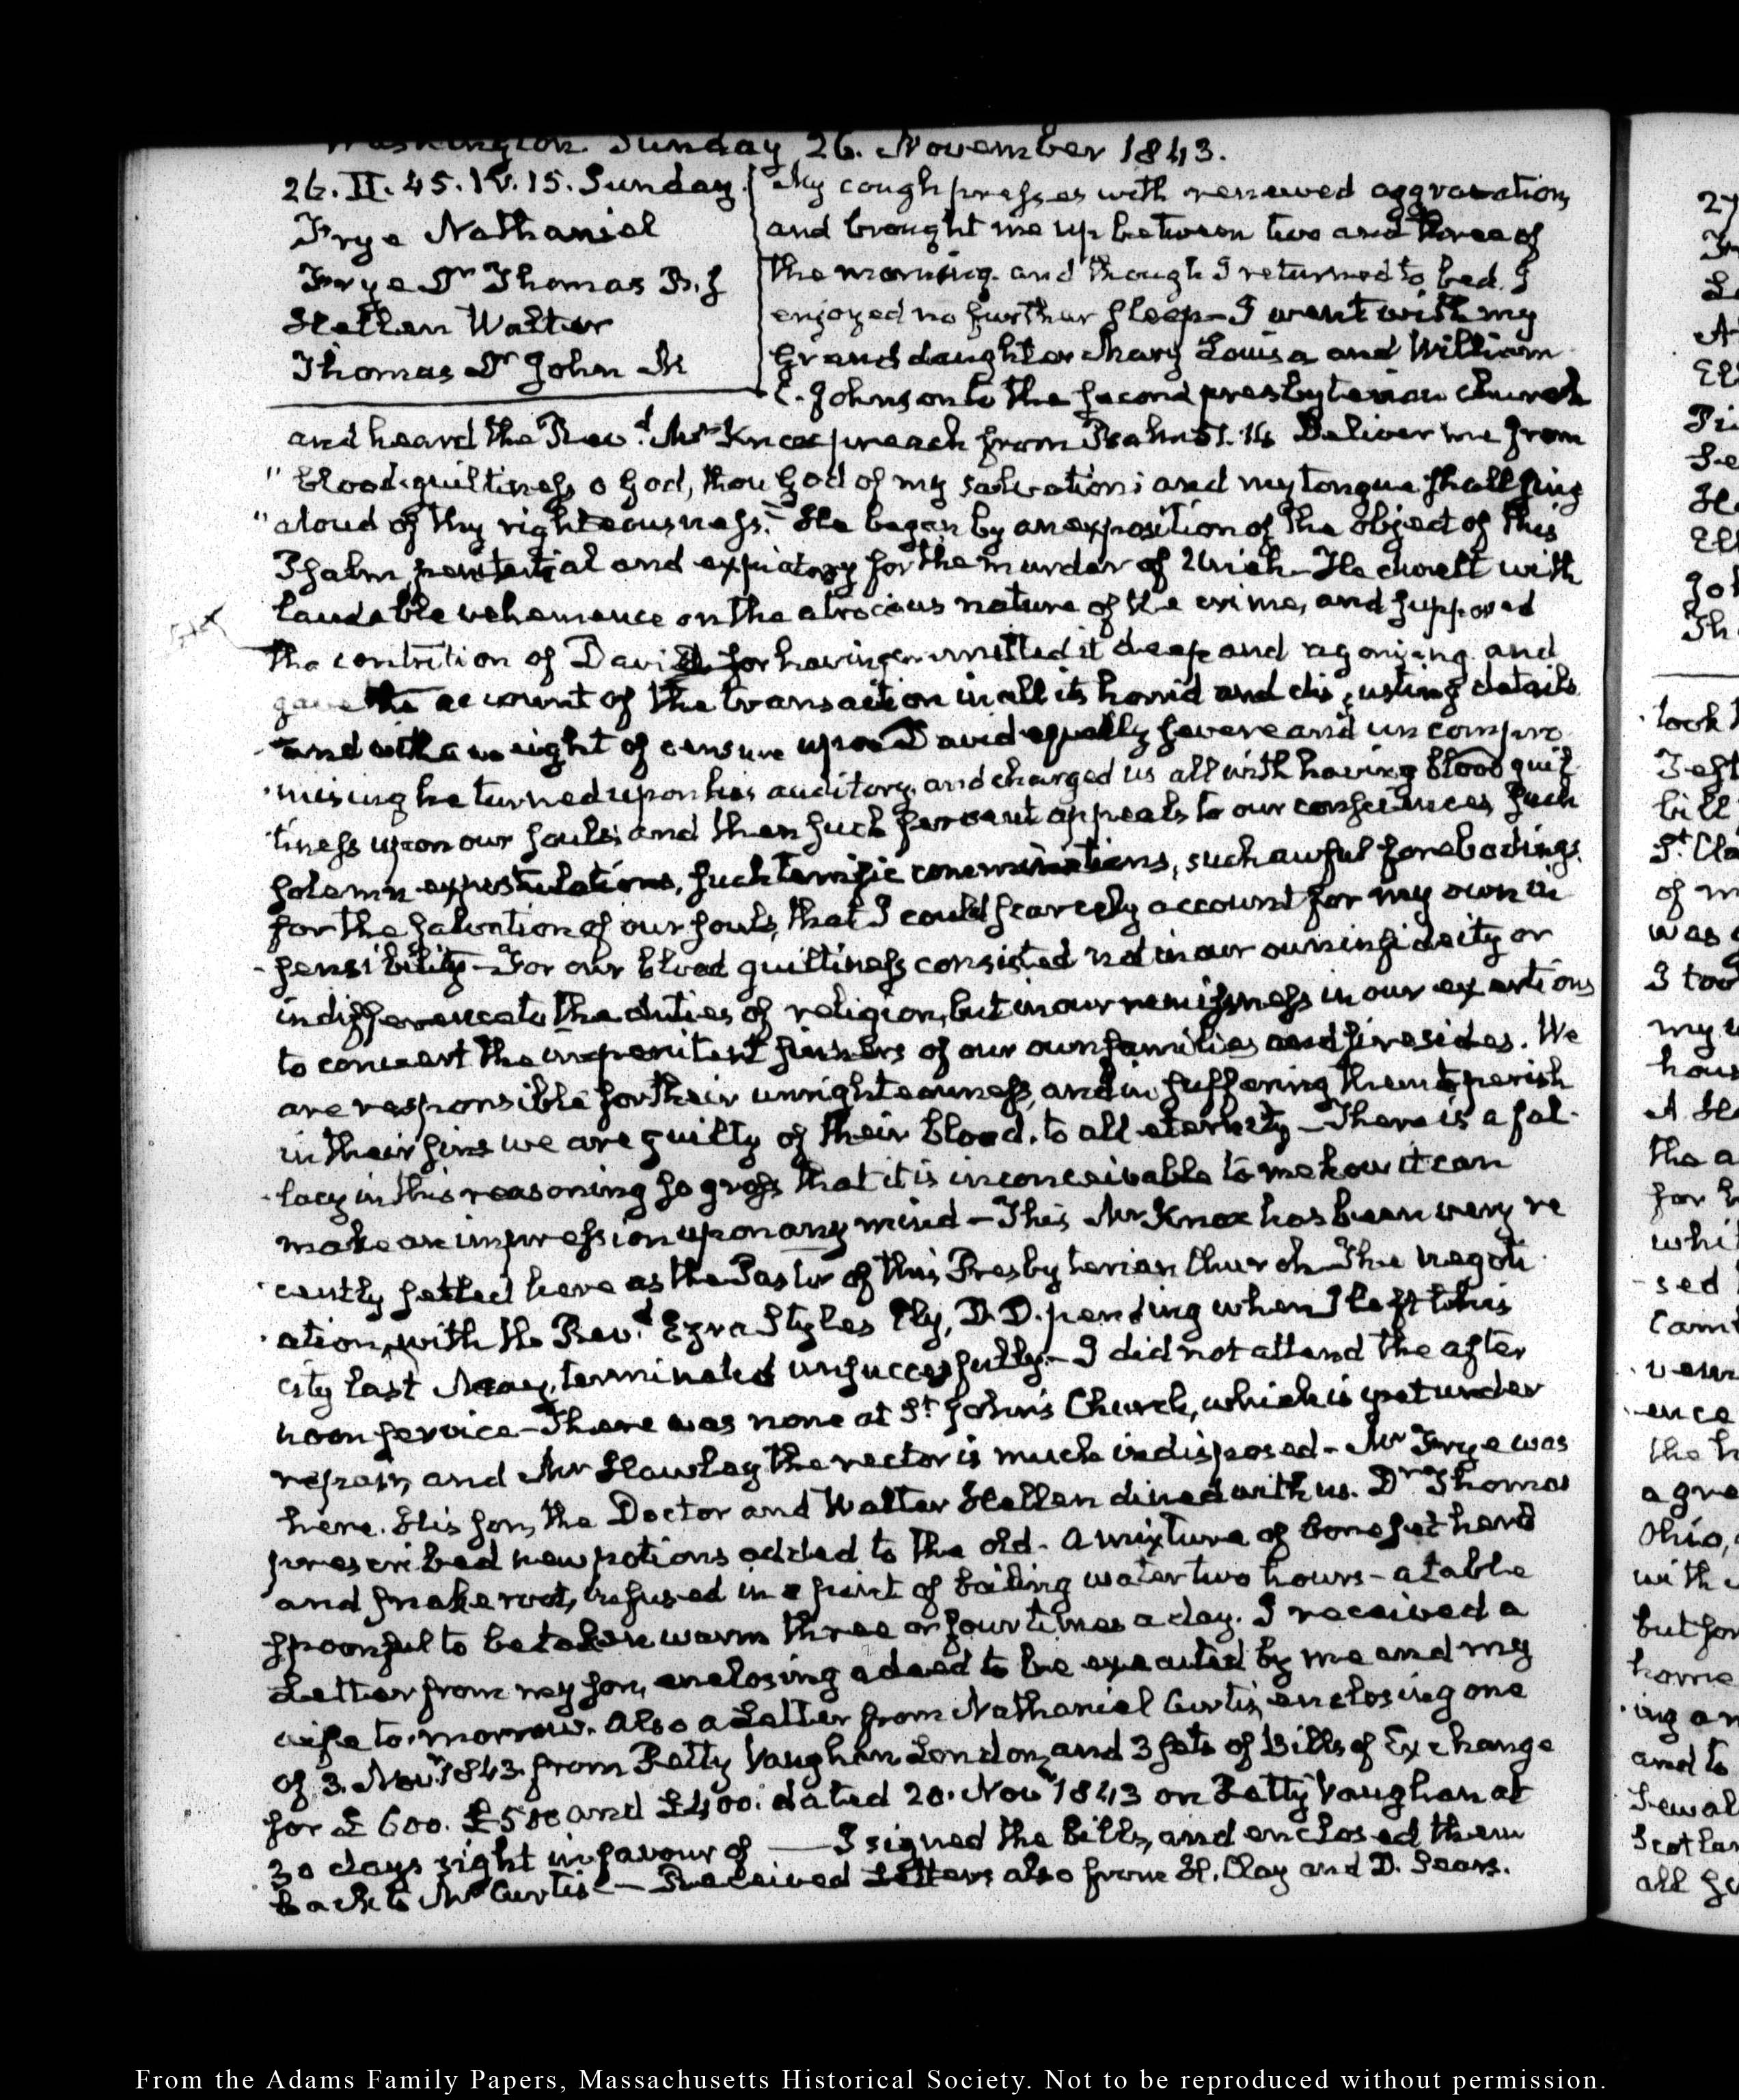 Washington. Sunday 26. November 1843.
26. II. 45. IV. 15. Sunday.
Frye Nathaniel
Frye Dr Thomas B. J
Hellen Walter
Thomas Dr John M
My cough presses with renewed aggravation,
and brought me up between two and three of
the morning. and though I returned to bed. I
enjoyed no further sleep — I went with my
Grand daughter Mary Louisa and William
C. Johnson to the second presbyterian church
and heard the Revd. Mr Knox preach from Psalm 51. 14 Deliver me from
" blood-guiltiness, o God, thou God of my salvation; and my tongue shall sing
" aloud of thy righteousness." He began by an exposition of the object of this
Psalm penitential and expiatory for the murder of Uriah — He dwelt with
laudable vehemence on the atrocious nature of the crime, and supposed
the contrition of David for having committed it deep and agonizing. and
gave the account of the transaction in all its horrid and disgusting details
and with a weight of censure upon David equally severe and uncompro-
-mising he turned upon his auditory, and charged us all with having blood guil-
-tiness upon our souls; and then such fervent appeals to our consciences, such
solemn expostulations, such terrific comminations, such awful forebodings.
for the salvation of our souls, that I could scarcely account for my own in
-sensibility — For our blood guiltiness consisted not in our own infidelity or
indifference to the duties of religion, but in our remissness in our exertions
to convert the impenitent sinners of our own families and firesides. We
are responsible for their unrighteousness, and in suffering them to perish
in their sins we are guilty of their blood. to all eternity — There is a fal-
-lacy in this reasoning so gross that it is inconceivable to me how it can
make an impression upon any mind — This Mr Knox has been very re
-cently settled here as the Pastor of this Presbyterian Church — The negoti
-ation, with the Revd. Ezra Styles Ely, D.D. pending when I left this
city last May, terminated unsuccessfully. — I did not attend the after
noon service — There was none at St John's Church, which is yet under
repair, and Mr Hawley the rector is much indisposed — Mr Frye was
here. His son, the Doctor and Walter Hellen dined with us. Dr Thomas
prescribed new potions added to the old — a mixture of boneset herb
and snake root, infused in a pint of boiling water two hours — a table
spoonful to be taken warm three or four times a day. I received a
Letter from my son, enclosing a deed to be executed by me and my
wife to-morrow. Also a Letter from Nathaniel Curtis, enclosing one
of 3. Novr 1843. from Petty Vaughan London, and 3 sets of Bills of Exchange
for £ 600. £ 500 and £400. dated 20. Novr 1843 on Petty Vaughan at
30 days sight in favour of —— I signed the bills, and enclosed them
back to Mr Curtis — Received Letters also from H. Clay and D. Sears.
From the Adams Family Papers, Massachusetts Historical Society. Not to be reproduced without permission.